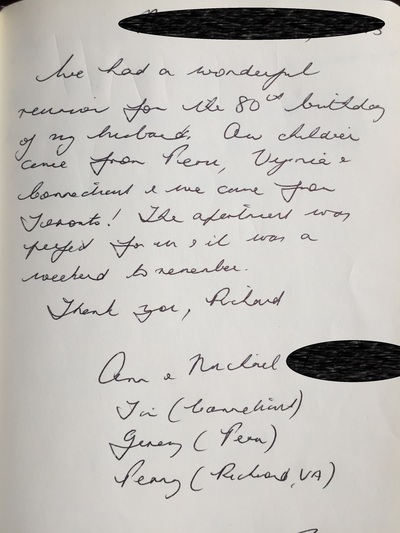 We had a wonderful
reunion for the 80th birthday
of my husband. Our children
came from Peru, Virginia &
Connecticut & we came from
Toronto! The apartment was
perfect for us & it was a
weekend to remember.
Thank you, Richard
Ann & Michael
(Connecticut)
(Peru)
Penny (Richmond, VA)